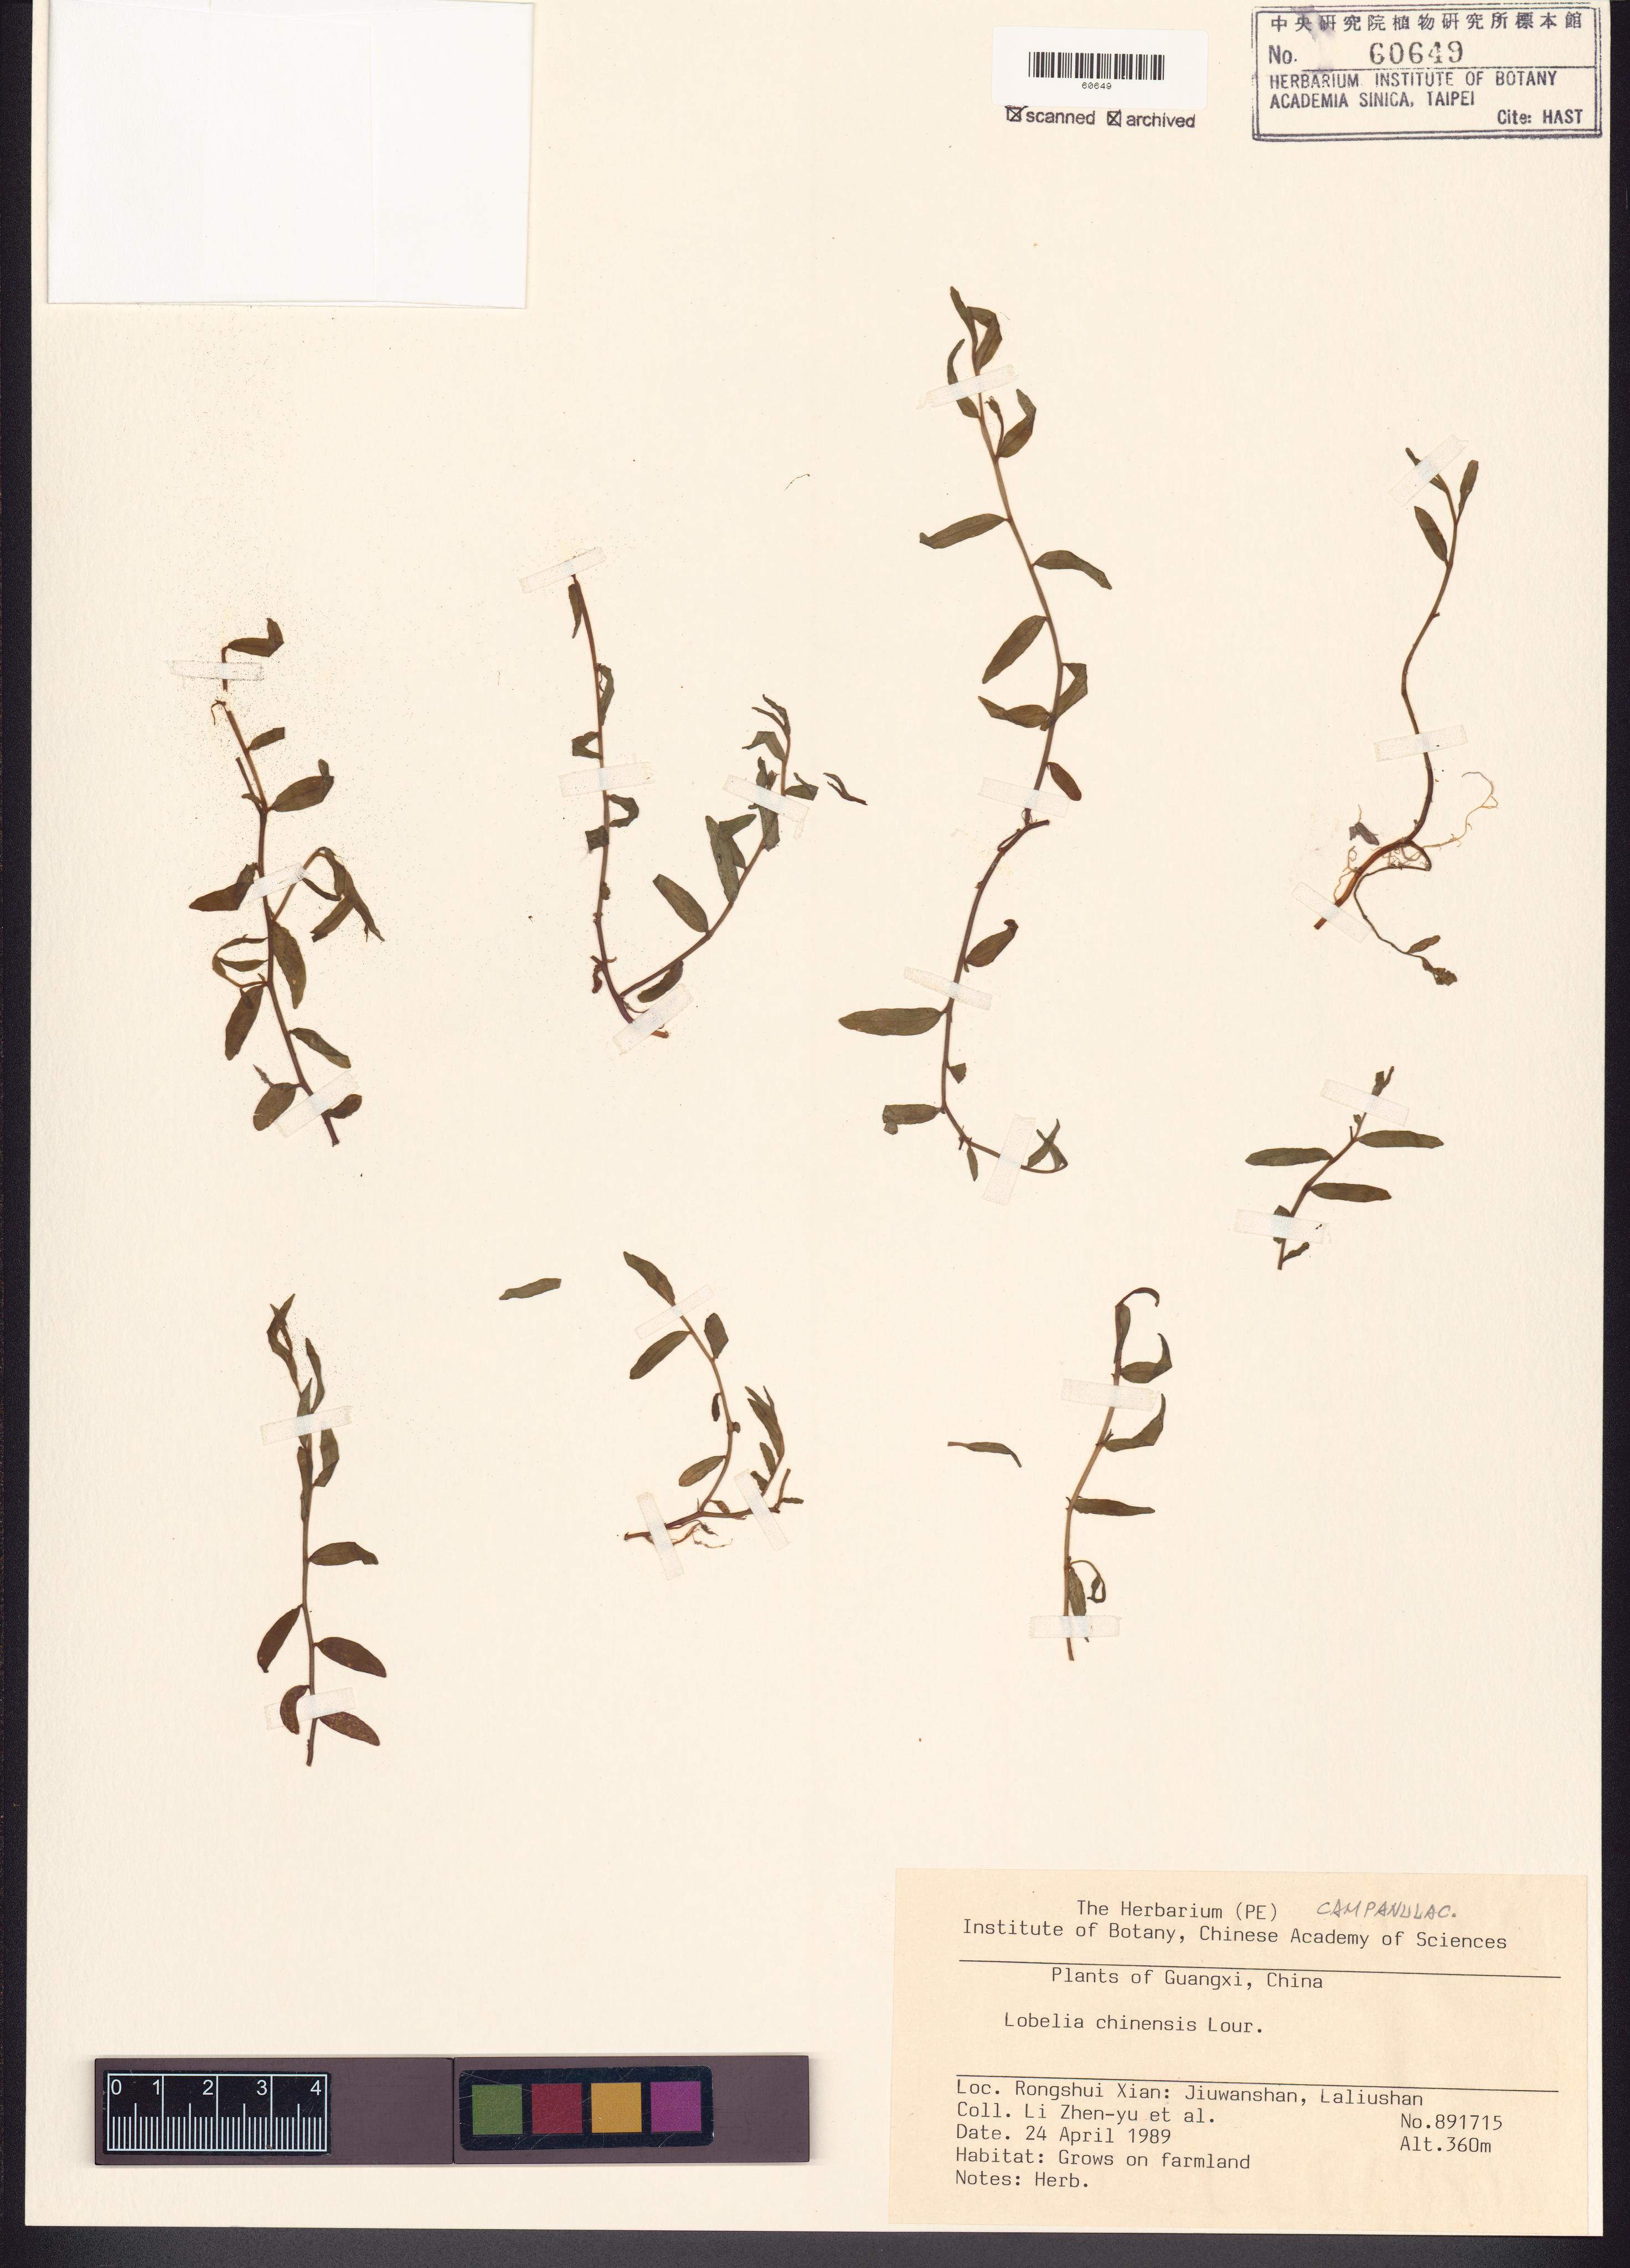 中央研究院植物研究所標本館
No. 60649
HERBARIUM INSTITUTE OF BOTANY
ACADEMIA SINICA, TAIPEI
Cite: HAST
60649
☒ scanned ☒ archived
The Herbarium (PE) CAMPANULAC.
Institute of Botany, Chinese Academy of Sciences
Plants of Guangxi, China
Lobelia chinensis Lour.
Loc. Rongshui Xian: Jiuwanshan, Laliushan
Coll. Li Zhen-yu et al. No.891715
Date. 24 April 1989 Alt.360m
Habitat: Grows on farmland
Notes: Herb.
0 1 2 3 4